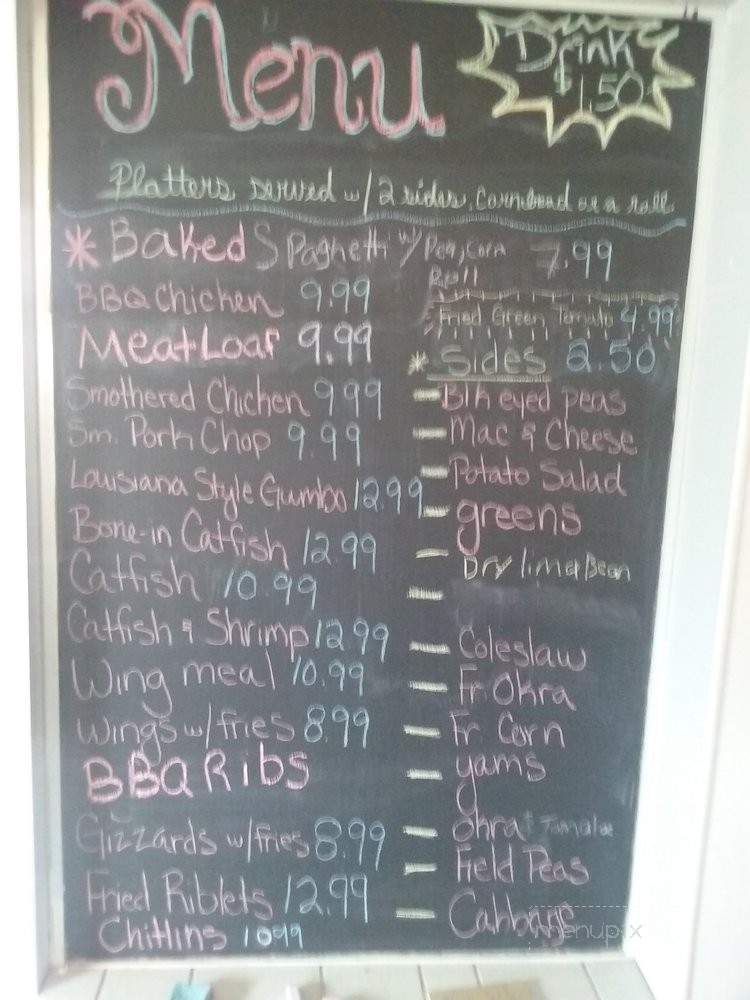 Menu
Drink
$1.50
Platters served w/2 sides, Cornbread or a roll
* Baked Spaghetti w/ Pea, Corn
Roll
7.99
BBQ Chicken 9.99
Meat Loaf 9.99
Smothered Chicken 9.99
Sm. Pork Chop 9.99
Louisiana Style Gumbo 12.99
Bone-in Catfish 12.99
Catfish 10.99
Catfish & Shrimp 12.99
Wing meal 10.99
Wings w/fries 8.99
BBQ Ribs
Gizzards w/fries 8.99
Fried Riblets 12.99
Chitlins 10.99
Fried Green Tomato 4.99
* Sides 2.50
- Blk eyed peas
- Mac & Cheese
- Potato Salad
- greens
- Dry lima Bean
-
- Coleslaw
- Fr. Okra
- Fr. Corn
- yams
- Okra & Tomatoe
- Field Peas
- Cabbage
menupix